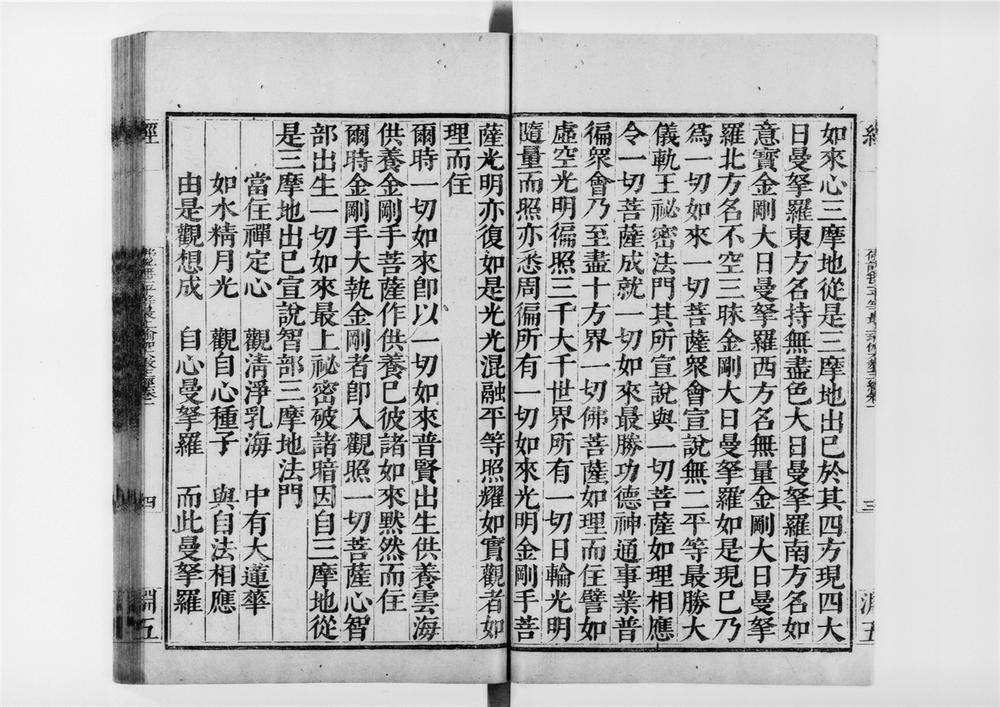 如來心三摩地從是三摩地出已於其四方現四大
日曼拏羅東方名持無盡色大日曼拏羅南方名如
意寶金剛大日曼拏羅西方名無量金剛大日曼拏
羅北方名不空三昧金剛大日曼拏羅如是現已乃
爲一切如來一切菩薩衆會宣說無二平等最勝大
儀軌王祕密法門其所宣說與一切菩薩如理相應
令一切菩薩成就一切如來最勝功德神通事業普
徧衆會乃至盡十方界一切佛菩薩如理而住譬如
虛空光明徧照三千大千世界所有一切日輪光明
隨量而照亦悉周徧所有一切如來光明金剛手菩
薩光明亦復如是光光混融平等照耀如實觀者如
理而住
爾時一切如來卽以一切如來普賢出生供養雲海
供養金剛手菩薩作供養已彼諸如來默然而住
爾時金剛手大執金剛者卽入觀照一切菩薩心智
部出生一切如來最上祕密破諸暗因自三摩地從
是三摩地出已宣說智部三摩地法門
當住禪定心 觀清淨乳海 中有大蓮華
如水精月光 觀自心種子 與自法相應
由是觀想成 自心曼拏羅 而此曼拏羅
經
四
淵五
三